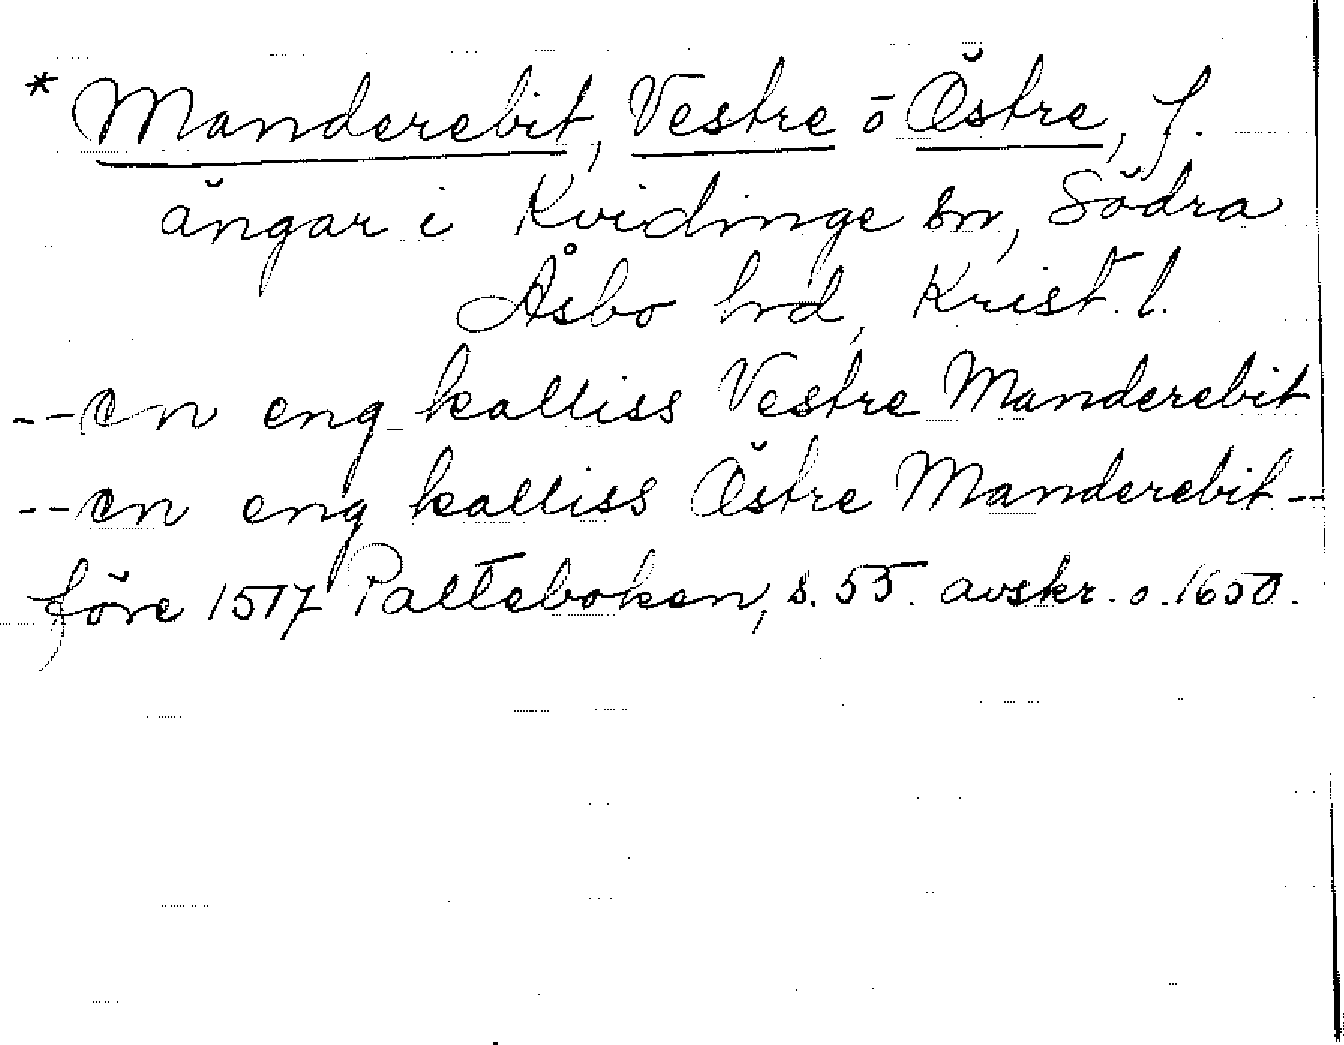 * Manderebit, Vestre o Östre, f.
ängar i Kvidinge sn, Södra
Åsbo hrd, Krist. l.
--en eng kalliss Vestre Manderebit
--en eng kalliss Östre Manderebit--
före 1517 Palteboken, s. 55. avskr. o. 1650.